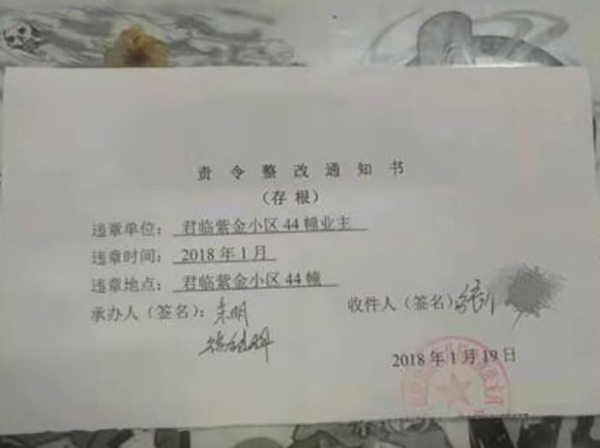 责令整改通知书
（存根）
违章单位：君临紫金小区44幢业主
违章时间：2018年1月
违章地点：君临紫金小区44幢
承办人（签名）：朱明
收件人（签名）
2018年1月19日